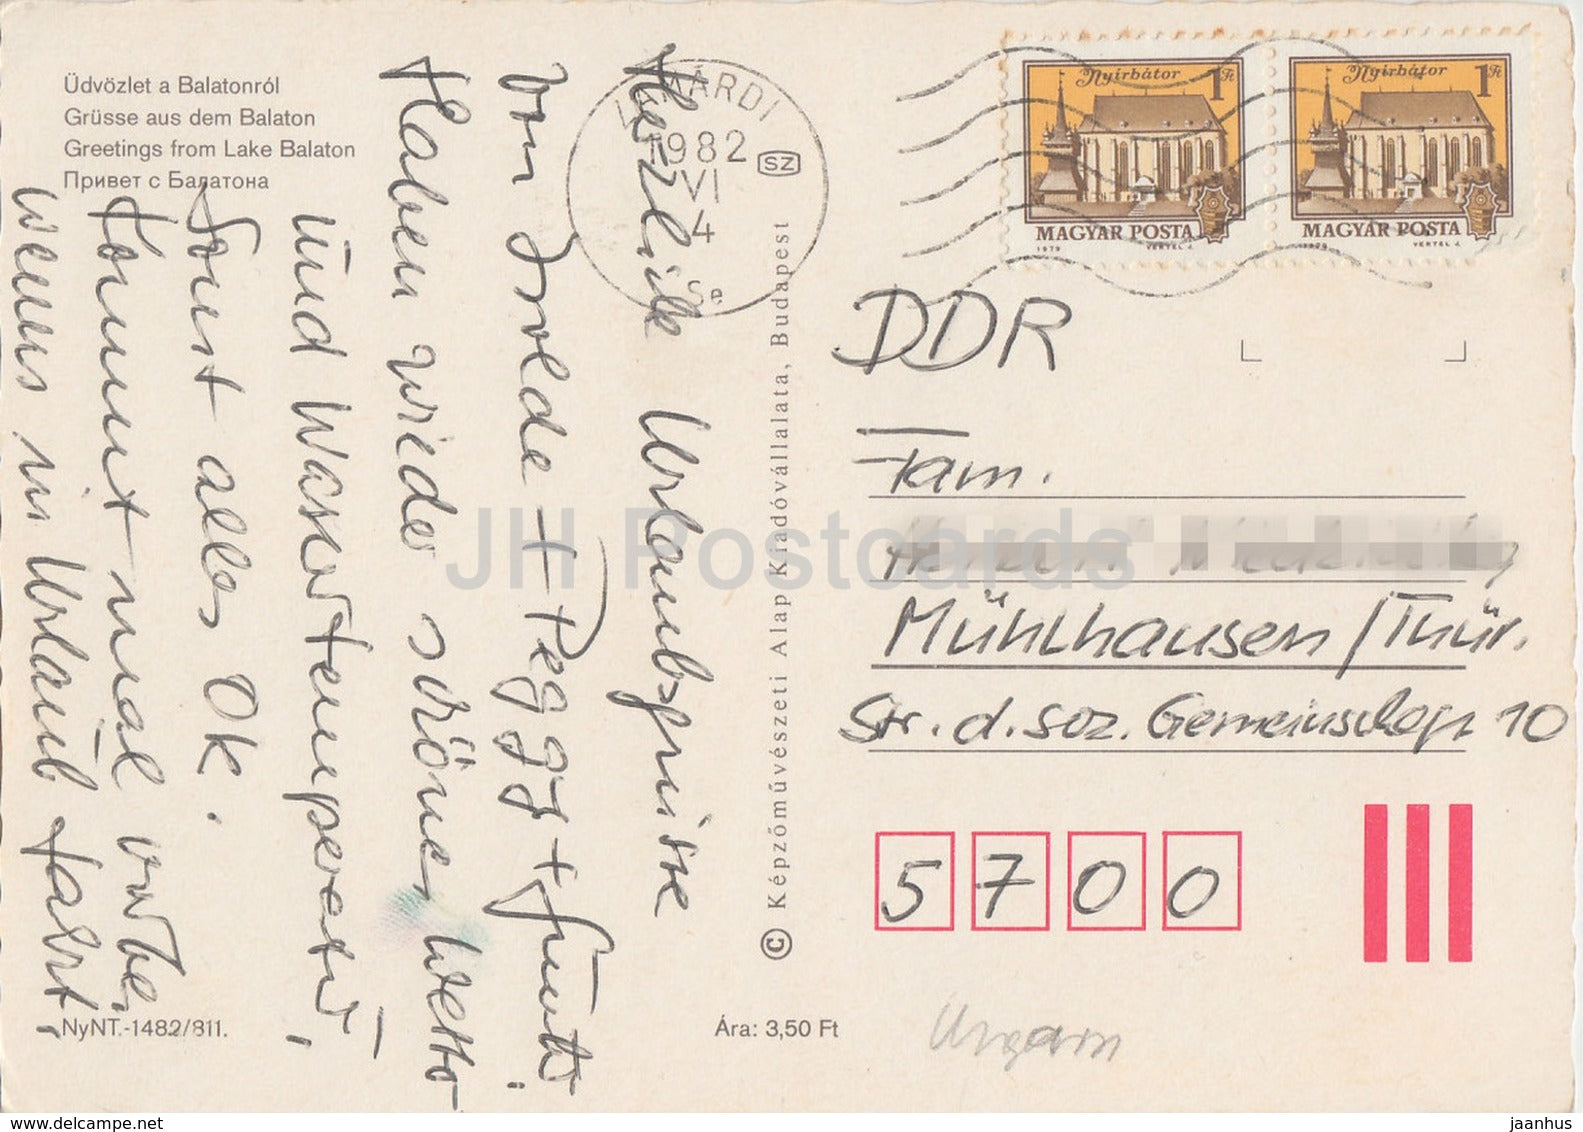 Üdvözlet a Balatonról
Grüsse aus dem Balaton
Greetings from Lake Balaton
Привет с Балатона
Herzliche Urlaubsgrüsse
von Isolde + Peggy +
Haben wieder schönes Wetter
und Wassertemperatur,
Sonst alles OK.
Kommt mal vorbei,
wenns in Urlaub fahrt.
1982
VI
4
SZ
Nyírbátor 1 Ft
MAGYAR POSTA
1979 VERTEL J.
Nyírbátor 1 Ft
MAGYAR POSTA
1979 VERTEL J.
DDR
Fam.
Mühlhausen/Thür.
Str. d. soz. Gemeinschaft 10
5700
© Képzőművészeti Alap Kiadóvállalata, Budapest
NyNT.-1482/811.
Ára: 3,50 Ft
Ungarn
JH Postcards
www.delcampe.net
jaanhus